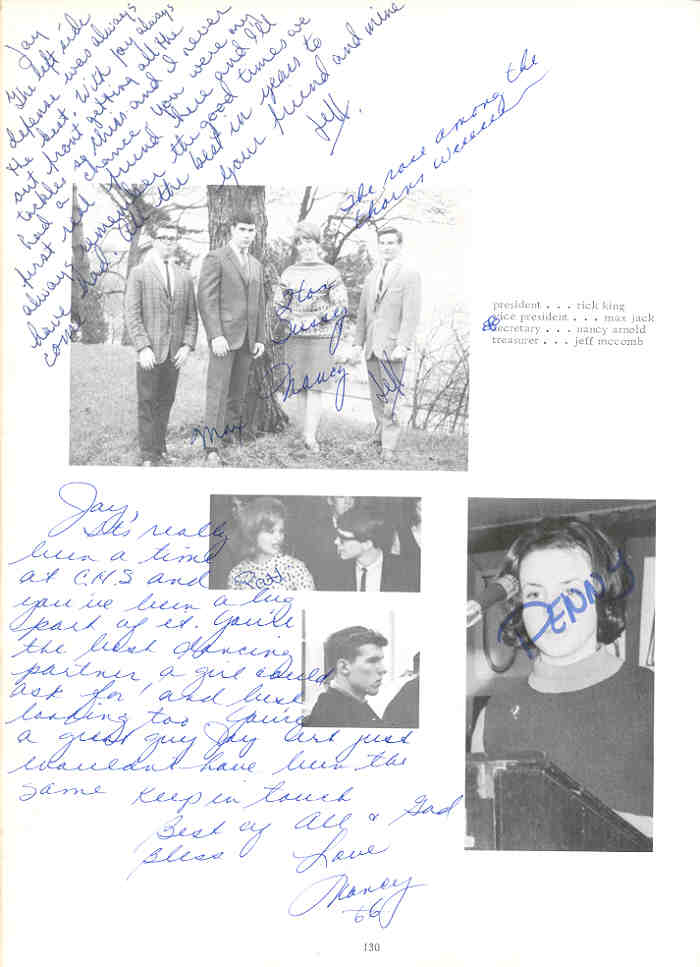 Jay
The left side
defense was always
the best. With Jay always
out front getting all the
tackles so this and I never
had a chance. You were my
first real friend here and I'll
always remember the good times we
have had. All the best in years to
come. Your friend and mine
Jeff.
The rose among the
thorns
president . . . rick king
vice president . . . max jack
secretary . . . nancy arnold
treasurer . . . jeff mccomb
Nancy
Jeff
Max
Jay,
It's really
been a time
at C.H.S and
you've been a big
part of it. You're
the best dancing
partner a girl could
ask for, and best
looking too. You're
a great guy Jay Art just
wouldn't have been the
same Keep in touch
Best of All & God
Bless Love
Nancy
66
Patty
PENNY
130